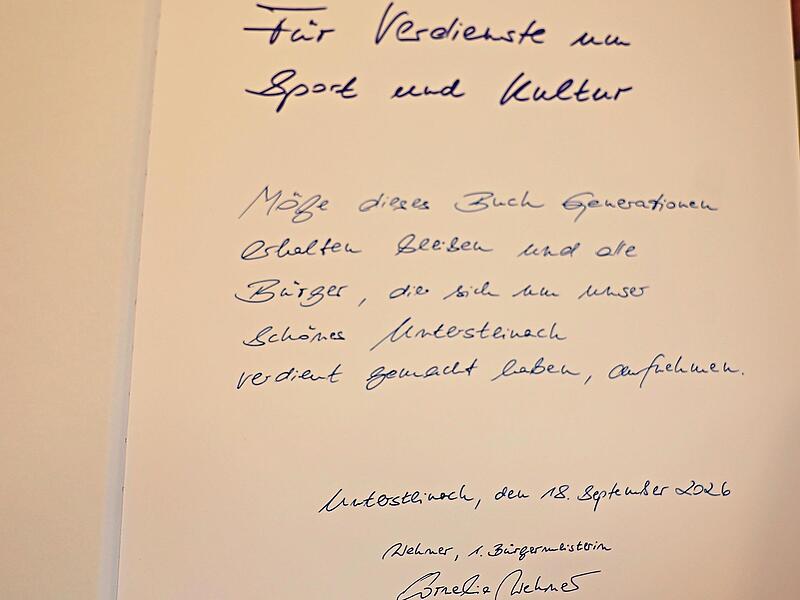 Für Verdienste um
Sport und Kultur
Möge dieses Buch Generationen
erhalten bleiben und alle
Bürger, die sich um unser
schönes Untersteinach
verdient gemacht haben, aufnehmen.
Untersteinach, den 18. September 2026
Wehner, 1. Bürgermeisterin
Cornelia Wehner